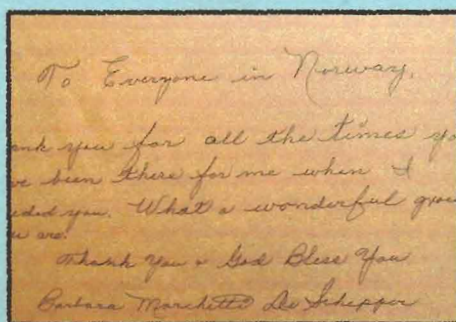 To Everyone in Norway,
ank you for all the times yo
ve been there for me when I
eded you. What a wonderful grou
u are.
Thank You & God Bless You
Barbara Marchetti De Schepper